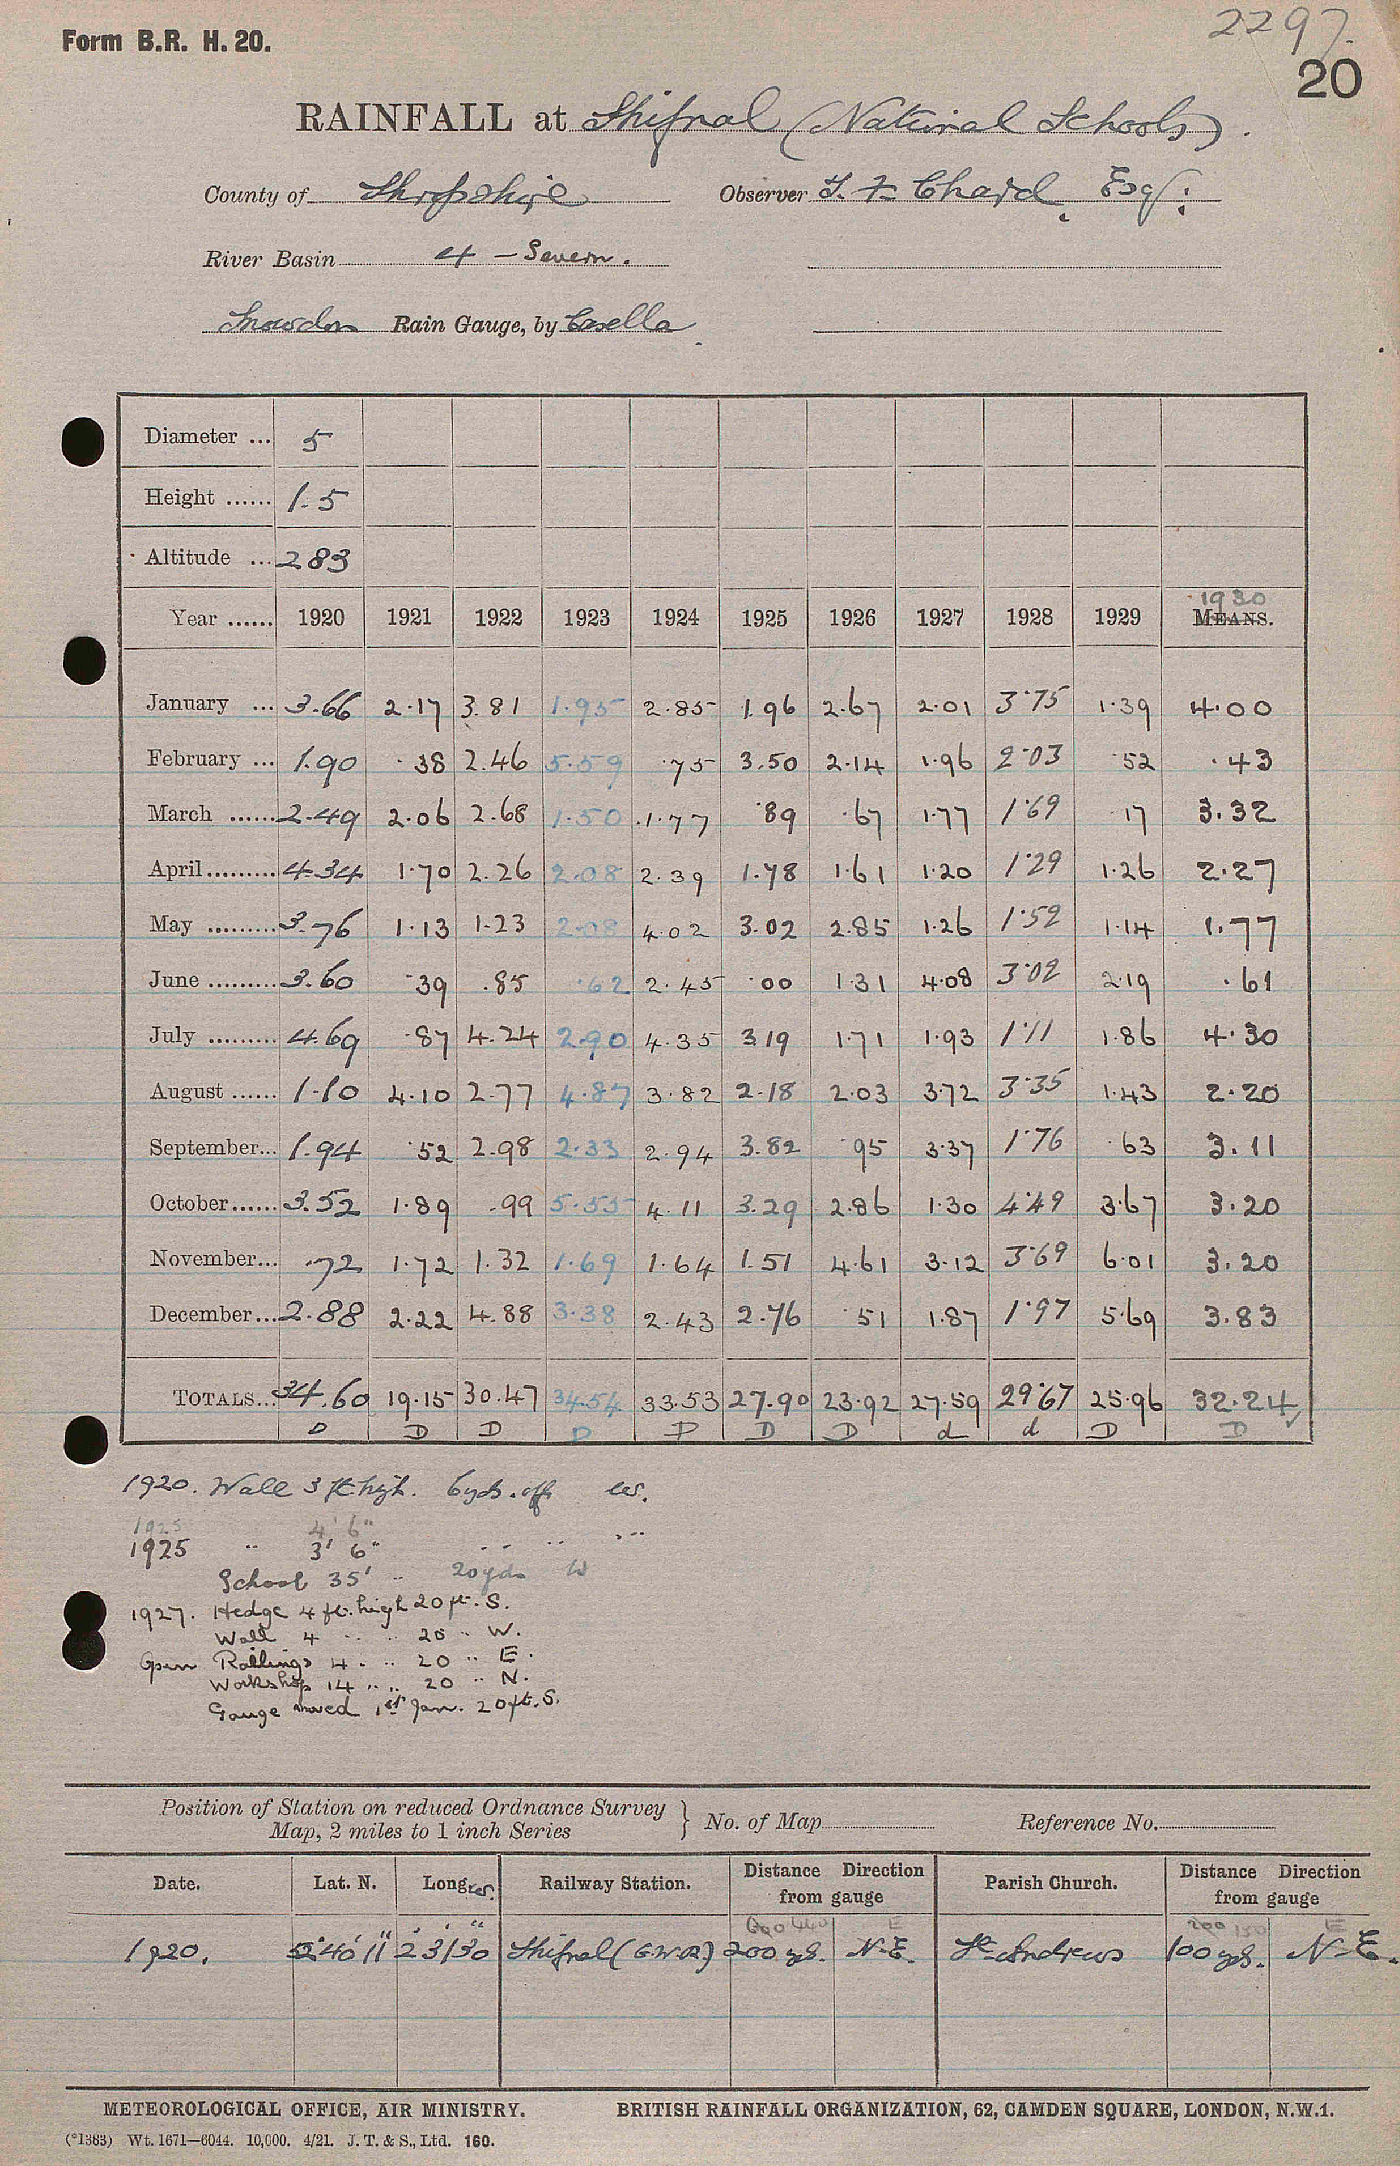 Form B.R. H. 20.
2297.
20
RAINFALL at Shifnal (National Schools).
County of Shropshire Observer T. F. Chard, Esq:
River Basin 4 - Severn.
Snowdon Rain Gauge, by Casella
Diameter ... 5
Height ...... 1.5
Altitude ... 283
1930
Year ...... 1920 1921 1922 1923 1924 1925 1926 1927 1928 1929 MEANS.
January ... 3.66 2.17 3.81 1.95 2.85 1.96 2.67 2.01 3.75 1.39 4.00
February ... 1.90 .38 2.46 5.59 .75 3.50 2.14 1.96 2.03 .52 .43
March ...... 2.49 2.06 2.68 1.50 1.77 .89 .67 1.77 1.69 .17 3.32
April ......... 4.34 1.70 2.26 2.08 2.39 1.78 1.61 1.20 1.29 1.26 2.27
May ......... 3.76 1.13 1.23 2.08 4.02 3.02 2.85 1.26 1.52 1.14 1.77
June ......... 3.60 .39 .85 .62 2.45 .00 1.31 4.08 3.02 2.19 .61
July ......... 4.69 .87 4.24 2.90 4.35 3.19 1.71 1.93 1.11 1.86 4.30
August ...... 1.10 4.10 2.77 4.87 3.82 2.18 2.03 3.72 3.35 1.43 2.20
September... 1.94 .52 2.98 2.33 2.94 3.82 .95 3.37 1.76 .63 3.11
October...... 3.52 1.89 .99 5.55 4.11 3.29 2.86 1.30 4.49 3.67 3.20
November... .72 1.72 1.32 1.69 1.64 1.51 4.61 3.12 3.69 6.01 3.20
December... 2.88 2.22 4.88 3.38 2.43 2.76 .51 1.87 1.97 5.69 3.83
TOTALS... 34.60 19.15 30.47 34.54 33.53 27.90 23.92 27.59 29.67 25.96 32.24
D D D D D D D d d D D
1920. Wall 3 ft. high. 6 yds. off W.
1925 4' 6"
1925 " 3' 6" " " "
School 35' " 20 yds W
1927. Hedge 4 ft. high 20 ft. S.
Wall 4 " " 20 " W.
Open Railings 4 " " 20 " E.
Workshop 14 " " 20 " N.
Gauge moved 1st Jan. 20 ft. S.
Position of Station on reduced Ordnance Survey Map, 2 miles to 1 inch Series } No. of Map Reference No.
Date. Lat. N. Long. W. Railway Station. Distance Direction from gauge Parish Church. Distance Direction from gauge
600 440 E 200 150 E
1920. 52° 40' 11" 2° 31' 30" Shifnal (G.W.R) 200 yds. N.E. St Andrews 100 yds. N-E.
METEOROLOGICAL OFFICE, AIR MINISTRY. BRITISH RAINFALL ORGANIZATION, 62, CAMDEN SQUARE, LONDON, N.W.1.
(*1383) Wt. 1671—6044. 10,000. 4/21. J. T. & S., Ltd. 160.